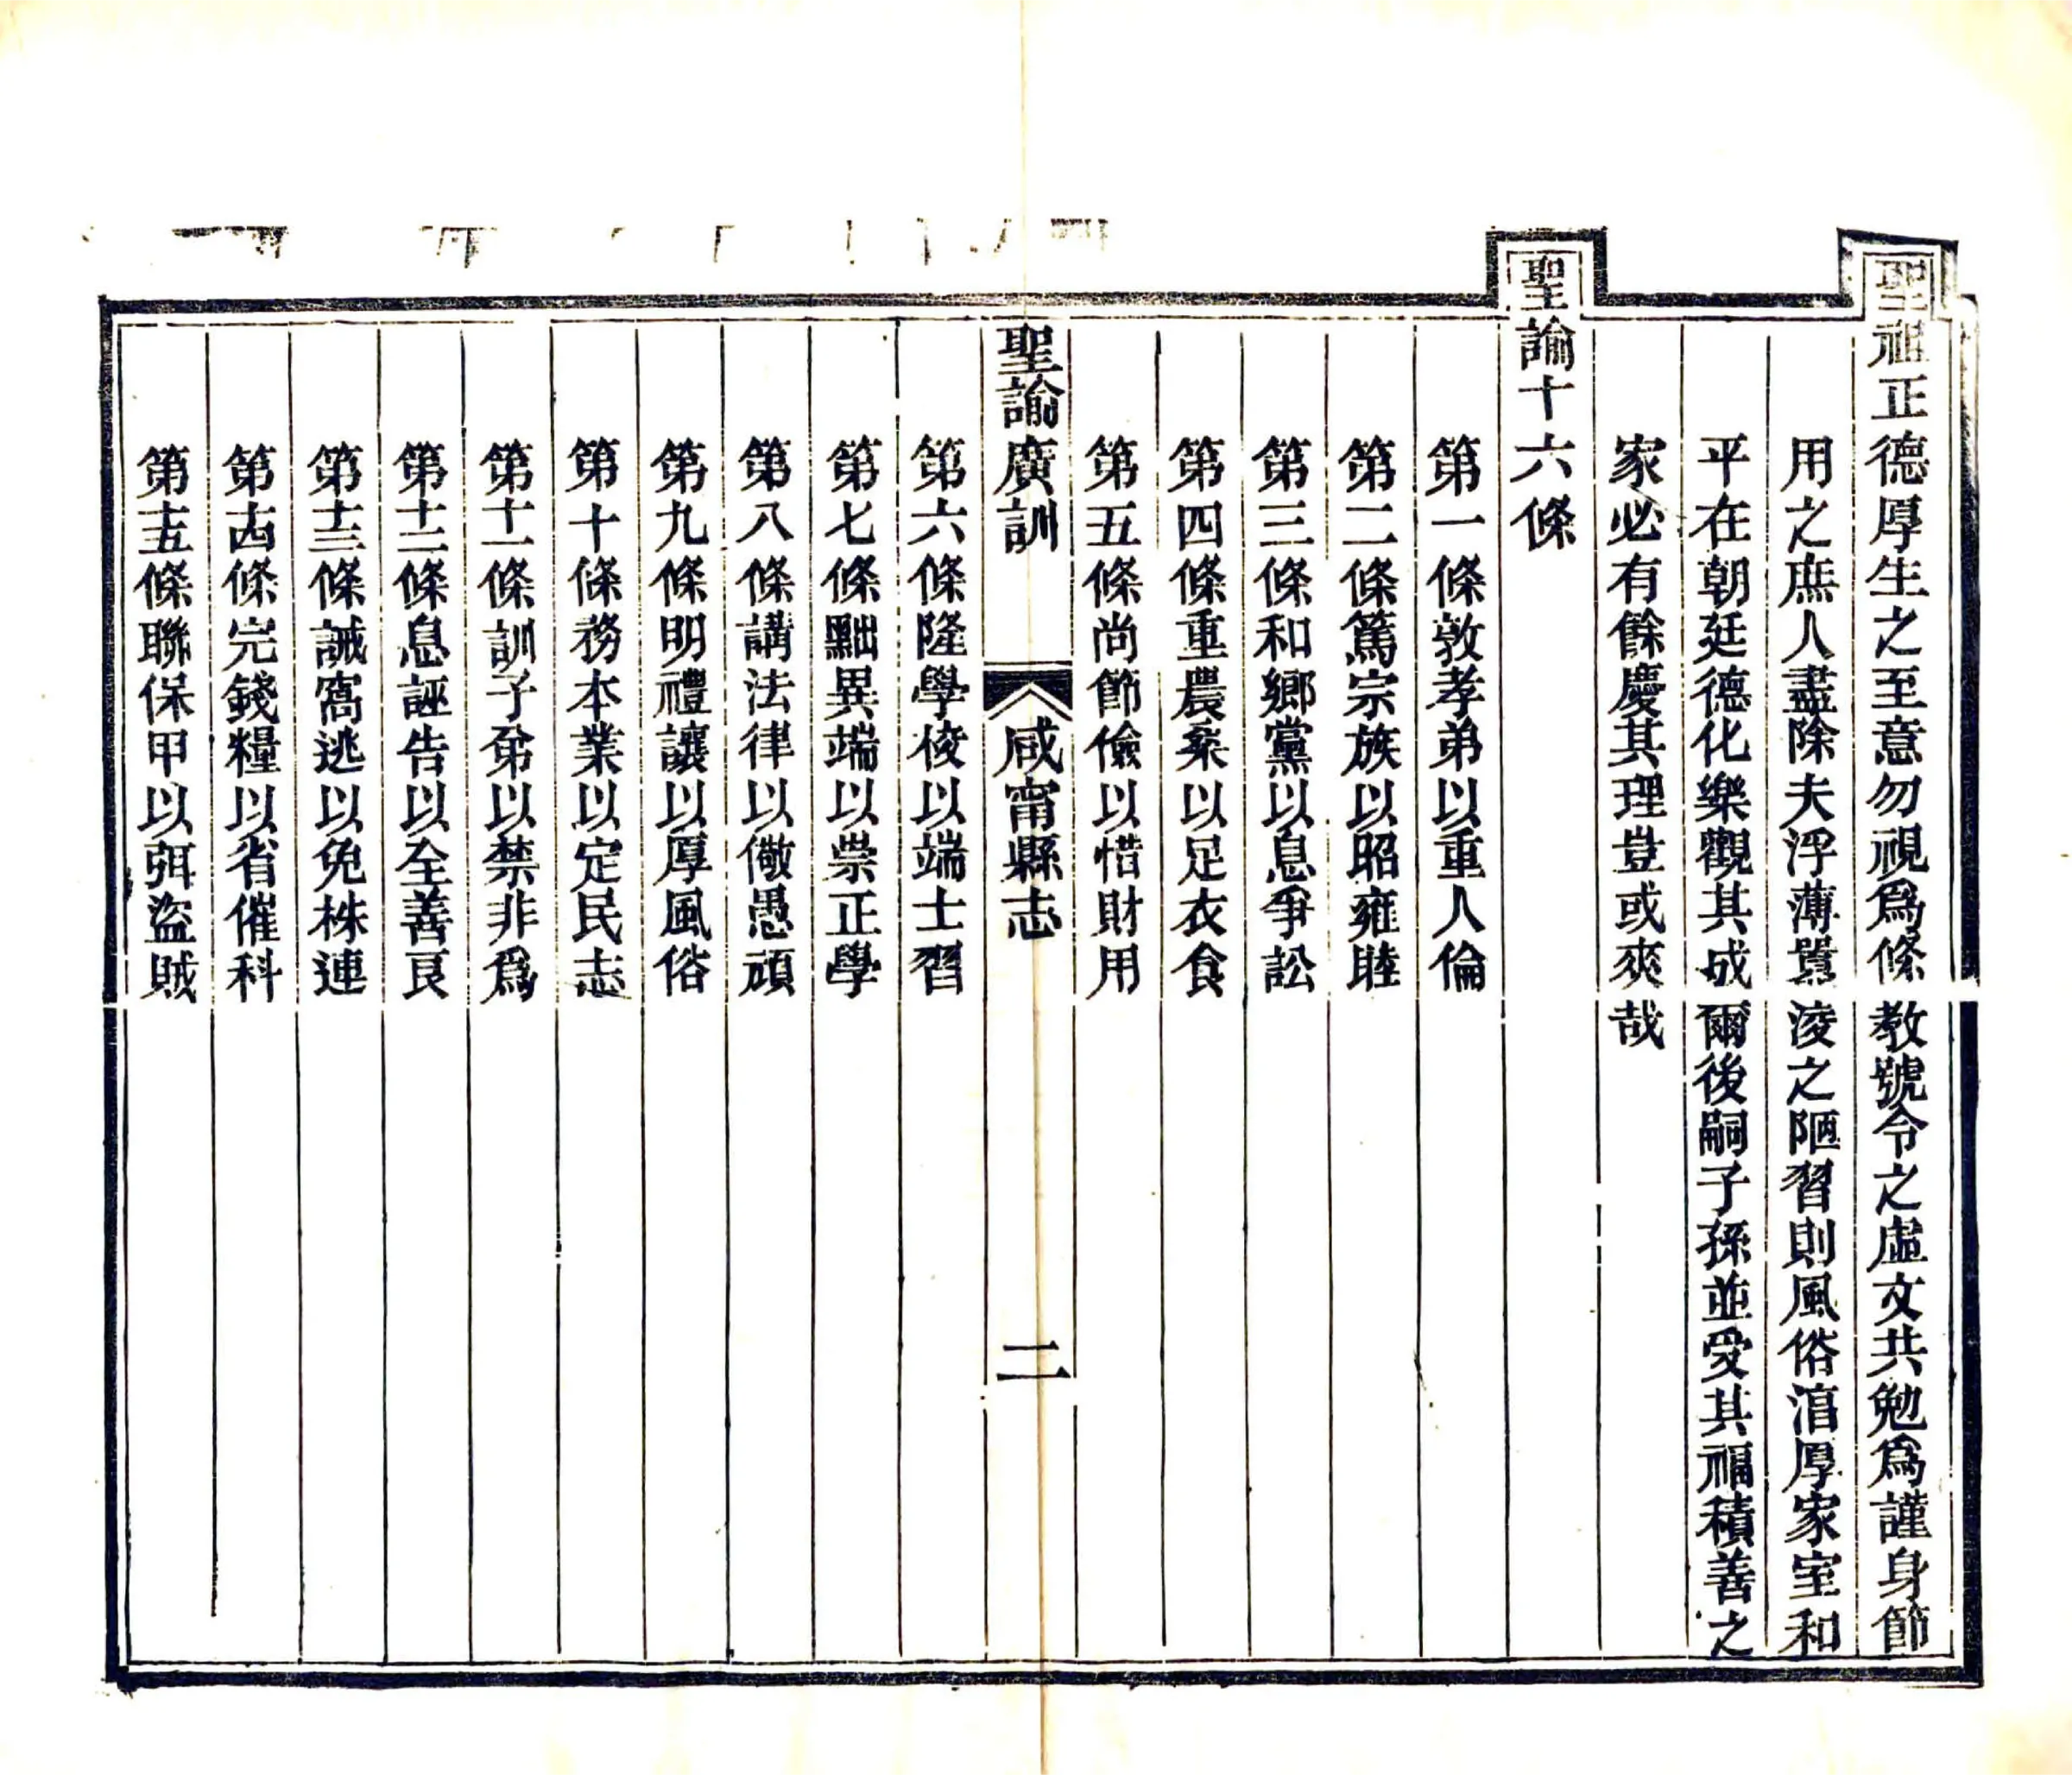 聖祖正德厚生之至意勿視爲條教號令之虛文共勉爲謹身節
用之庶人盡除夫浮薄囂淩之陋習則風俗湻厚家室和
平在朝廷德化樂觀其成爾後嗣子孫並受其福積善之
家必有餘慶其理豈或爽哉
聖諭十六條
第一條敦孝弟以重人倫
第二條篤宗族以昭雍睦
第三條和鄉黨以息爭訟
第四條重農桒以足衣食
第五條尚節儉以惜財用
聖諭廣訓
咸甯縣志
二
第六條隆學校以端士習
第七條黜異端以崇正學
第八條講法律以儆愚頑
第九條明禮讓以厚風俗
第十條務本業以定民志
第十一條訓子弟以禁非爲
第十二條息誣告以全善良
第十三條誡窩逃以免株連
第十四條完錢糧以省催科
第十五條聯保甲以弭盜賊